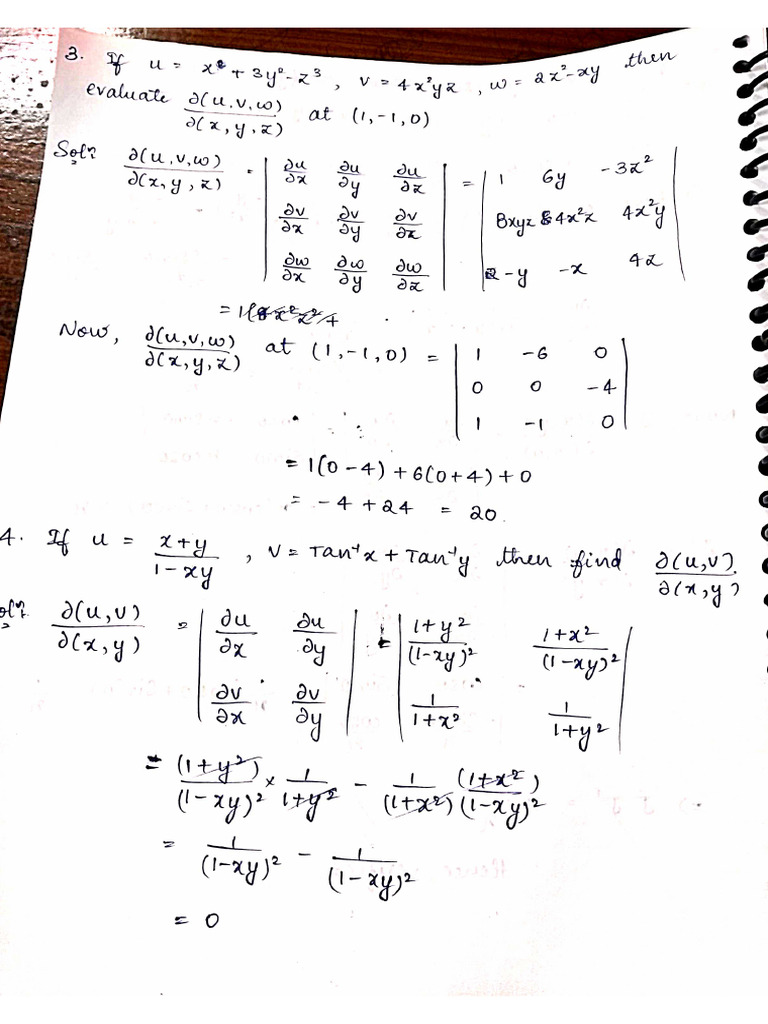 3. If u = x² + 3y² - z³ , v = 4x²yz , w = 2z² - xy then
evaluate ∂(u,v,w)/∂(x,y,z) at (1,-1,0)
Solⁿ ∂(u,v,w)/∂(x,y,z) = | ∂u/∂x ∂u/∂y ∂u/∂z | = | 1 6y -3z² |
| ∂v/∂x ∂v/∂y ∂v/∂z | | 8xyz 4x²z 4x²y |
| ∂w/∂x ∂w/∂y ∂w/∂z | | -y -x 4z |
Now, ∂(u,v,w)/∂(x,y,z) at (1,-1,0) = | 1 -6 0 |
| 0 0 -4 |
| 1 -1 0 |
= 1(0-4) + 6(0+4) + 0
= -4 + 24 = 20
4. If u = x+y/1-xy , v = Tan⁻¹x + Tan⁻¹y then find ∂(u,v)/∂(x,y)
Solⁿ ∂(u,v)/∂(x,y) = | ∂u/∂x ∂u/∂y | = | 1+y²/(1-xy)² 1+x²/(1-xy)² |
| ∂v/∂x ∂v/∂y | | 1/1+x² 1/1+y² |
= (1+y²)/(1-xy)² × 1/1+y² - 1/(1+x²) (1+x²)/(1-xy)²
= 1/(1-xy)² - 1/(1-xy)²
= 0